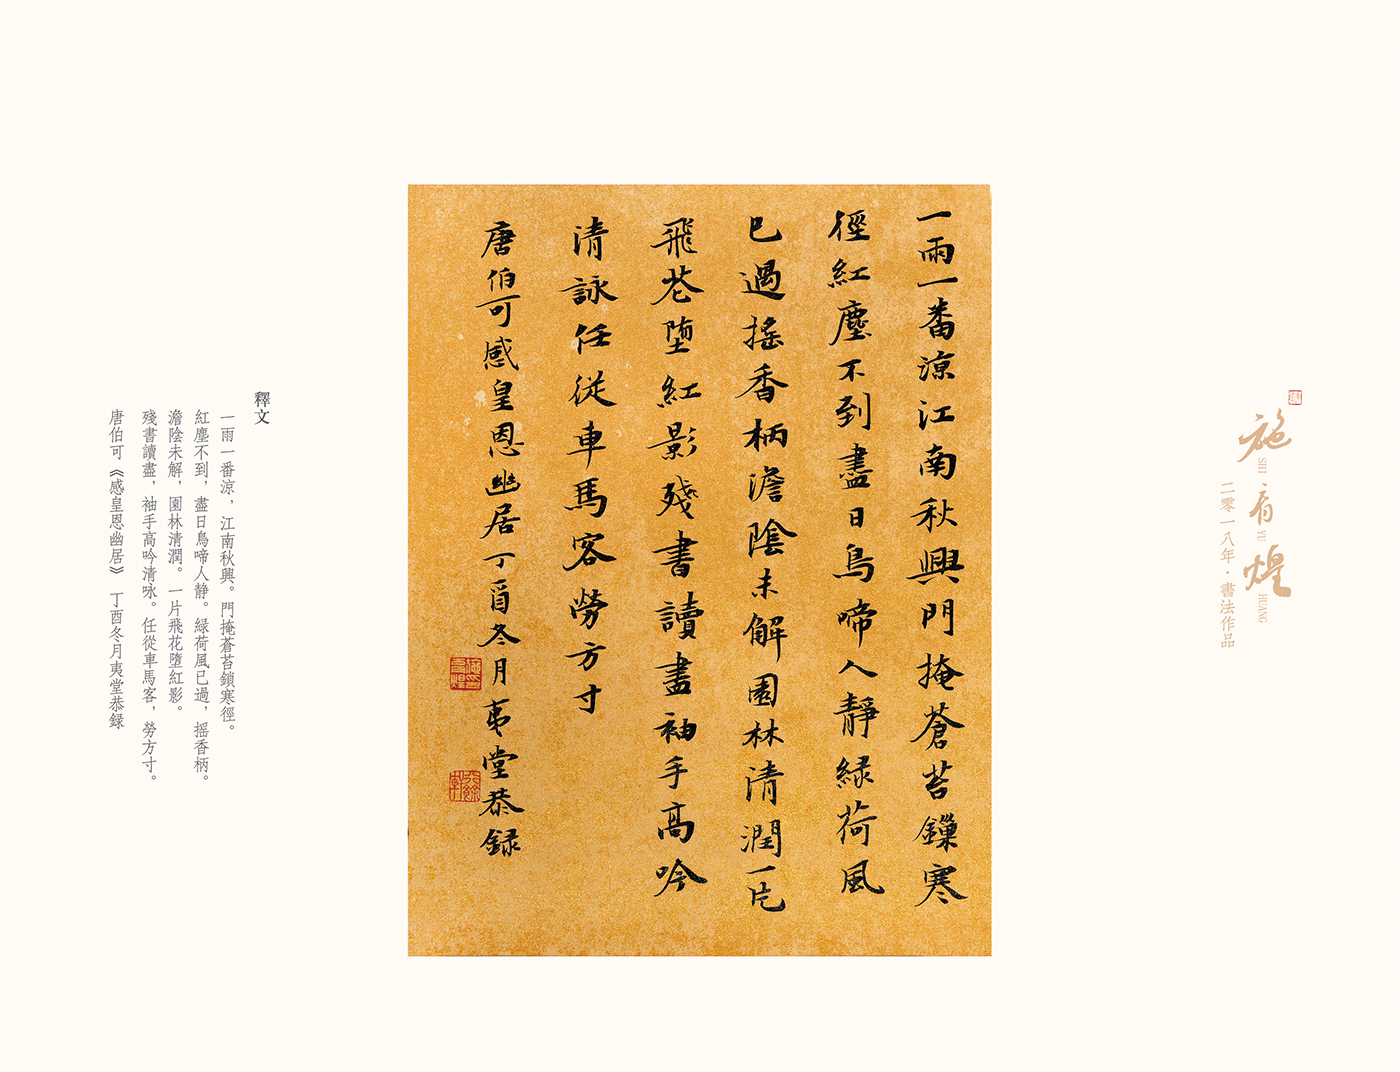 施育煌
SHI YU HUANG
二零一八年·書法作品
一雨一番涼江南秋興門掩蒼苔鏁寒
徑紅塵不到盡日鳥啼人靜緑荷風
已過搖香柄澹陰未解園林清潤一片
飛花堕紅影殘書讀盡袖手高吟
清詠任從車馬客勞方寸
唐伯可感皇恩幽居丁酉冬月夷堂恭録
釋文
一雨一番涼，江南秋興。門掩蒼苔鎖寒徑。
紅塵不到，盡日鳥啼人静。緑荷風已過，摇香柄。
澹陰未解，園林清潤。一片飛花墮紅影。
殘書讀盡，袖手高吟清咏。任從車馬客，勞方寸。
唐伯可《感皇恩幽居》 丁酉冬月夷堂恭録